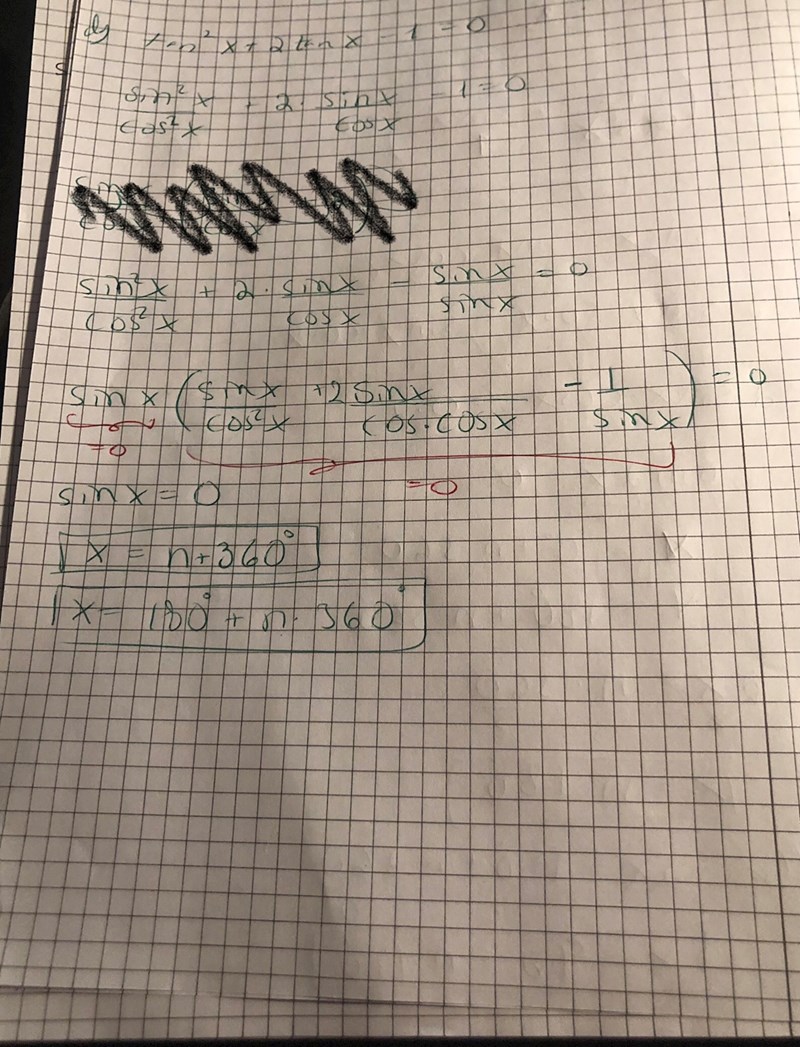 d) tan² x + 2 tan x - 1 = 0
sin² x / cos² x + 2 · sin x / cos x - 1 = 0
sin² x / cos² x + 2 · sin x / cos x - sin x / sin x = 0
sin x ( sin x / cos² x + 2 sin x / cos · cos x - 1 / sin x ) = 0
= 0
= 0
sin x = 0
x = n + 360°
x = 180° + n · 360°